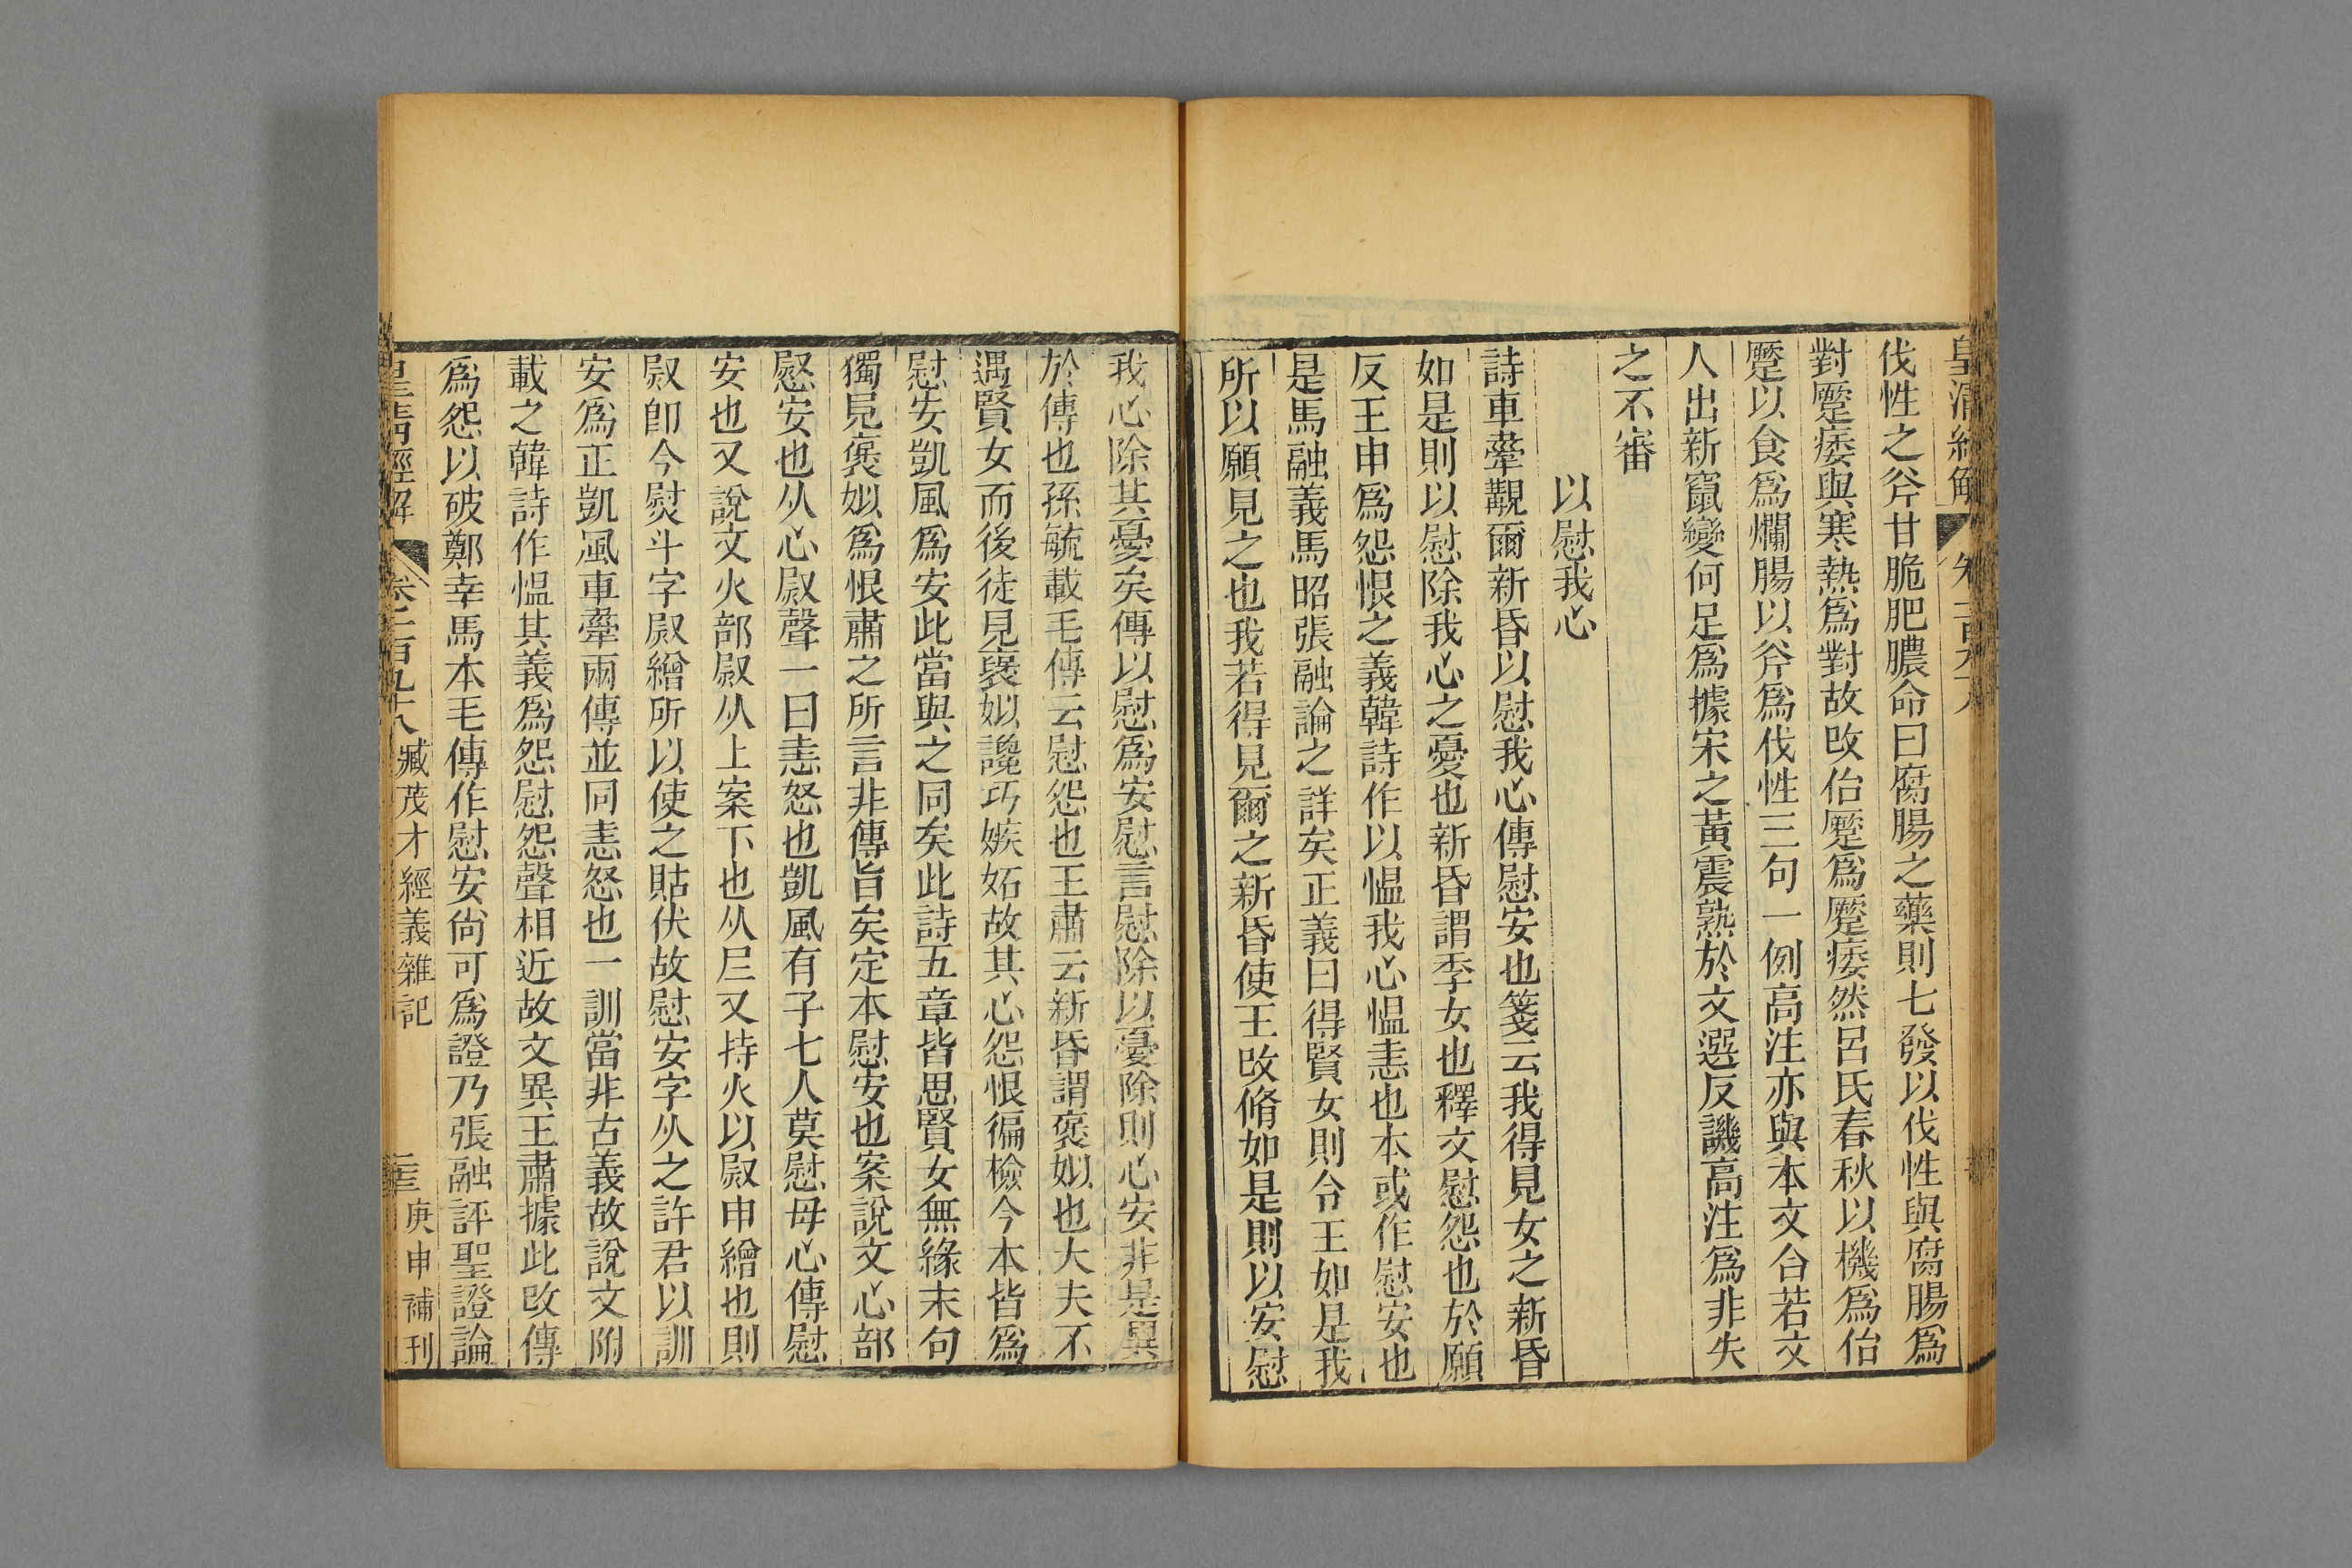 皇清經解 卷一百九十八
伐性之斧甘脆肥膿命曰腐腸之藥則七發以伐性與腐腸爲
對蹷痿與寒熱爲對故改佁蹷爲蹷痿然呂氏春秋以機爲佁
蹷以食爲爛腸以斧爲伐性三句一例高注亦與本文合若文
人出新竄變何足爲據宋之黃震熟於文選反譏高注爲非失
之不審
以慰我心
詩車舝觀爾新昏以慰我心傳慰安也箋云我得見女之新昏
如是則以慰除我心之憂也新昏謂季女也釋文慰怨也於願
反王申爲怨恨之義韓詩作以愠我心愠恚也本或作慰安也
是馬融義馬昭張融論之詳矣正義曰得賢女則令王如是我
所以願見之也我若得見爾之新昏使王改脩如是則以安慰
我心除其憂矣傳以慰爲安慰言慰除以憂除則心安非是異
於傳也孫毓載毛傳云慰怨也王肅云新昏謂褒姒也大夫不
遇賢女而後徒見褒姒讒巧嫉妬故其心怨恨徧檢今本皆爲
慰安凱風爲安此當與之同矣此詩五章皆思賢女無緣末句
獨見褒姒爲恨肅之所言非傳旨矣定本慰安也案說文心部
慰安也从心尉聲一曰恚怒也凱風有子七人莫慰母心傳慰
安也又說文火部尉从上案下也从𡰥又持火以尉申繒也則
尉卽今熨斗字尉繒所以使之貼伏故慰安字从之許君以訓
安爲正凱風車舝兩傳並同恚怒也一訓當非古義故說文附
載之韓詩作愠其義爲怨慰怨聲相近故文異王肅據此改傳
爲怨以破鄭幸馬本毛傳作慰安尙可爲證乃張融評聖證論
皇淸經解 卷二百九十八 臧茂才經義雜記 三 庚申補刊